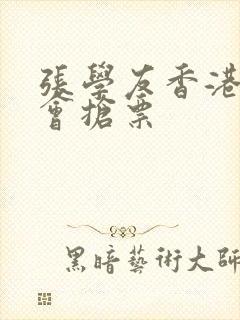 張學友香港
會搶票
黑暗藝術大師